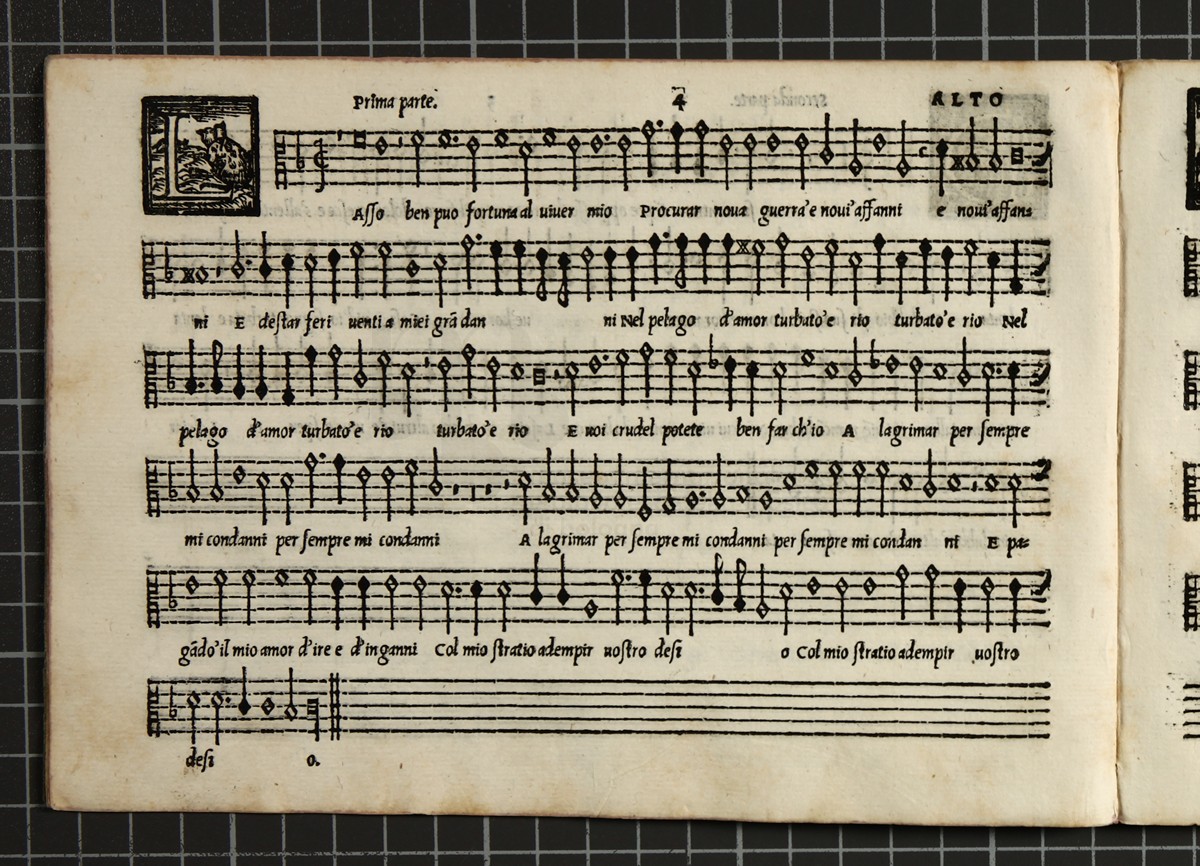 Prima parte. 4 ALTO
L
Asso ben puo fortuna al uiuer mio Procurar noua guerra'e noui'affanni e noui'affan=
ni E destar feri uenti a miei grã dan ni Nel pelago d'amor turbato'e rio turbato'e rio Nel
pelago d'amor turbato'e rio turbato'e rio E uoi crudel potete ben far ch'io A lagrimar per sempre
mi condanni per sempre mi condanni A lagrimar per sempre mi condanni per sempre mi condan ni E pa=
gãdo'il mio amor d'ire e d'inganni Col mio stratio adempir uostro desi o Col mio stratio adempir uostro
desi o.